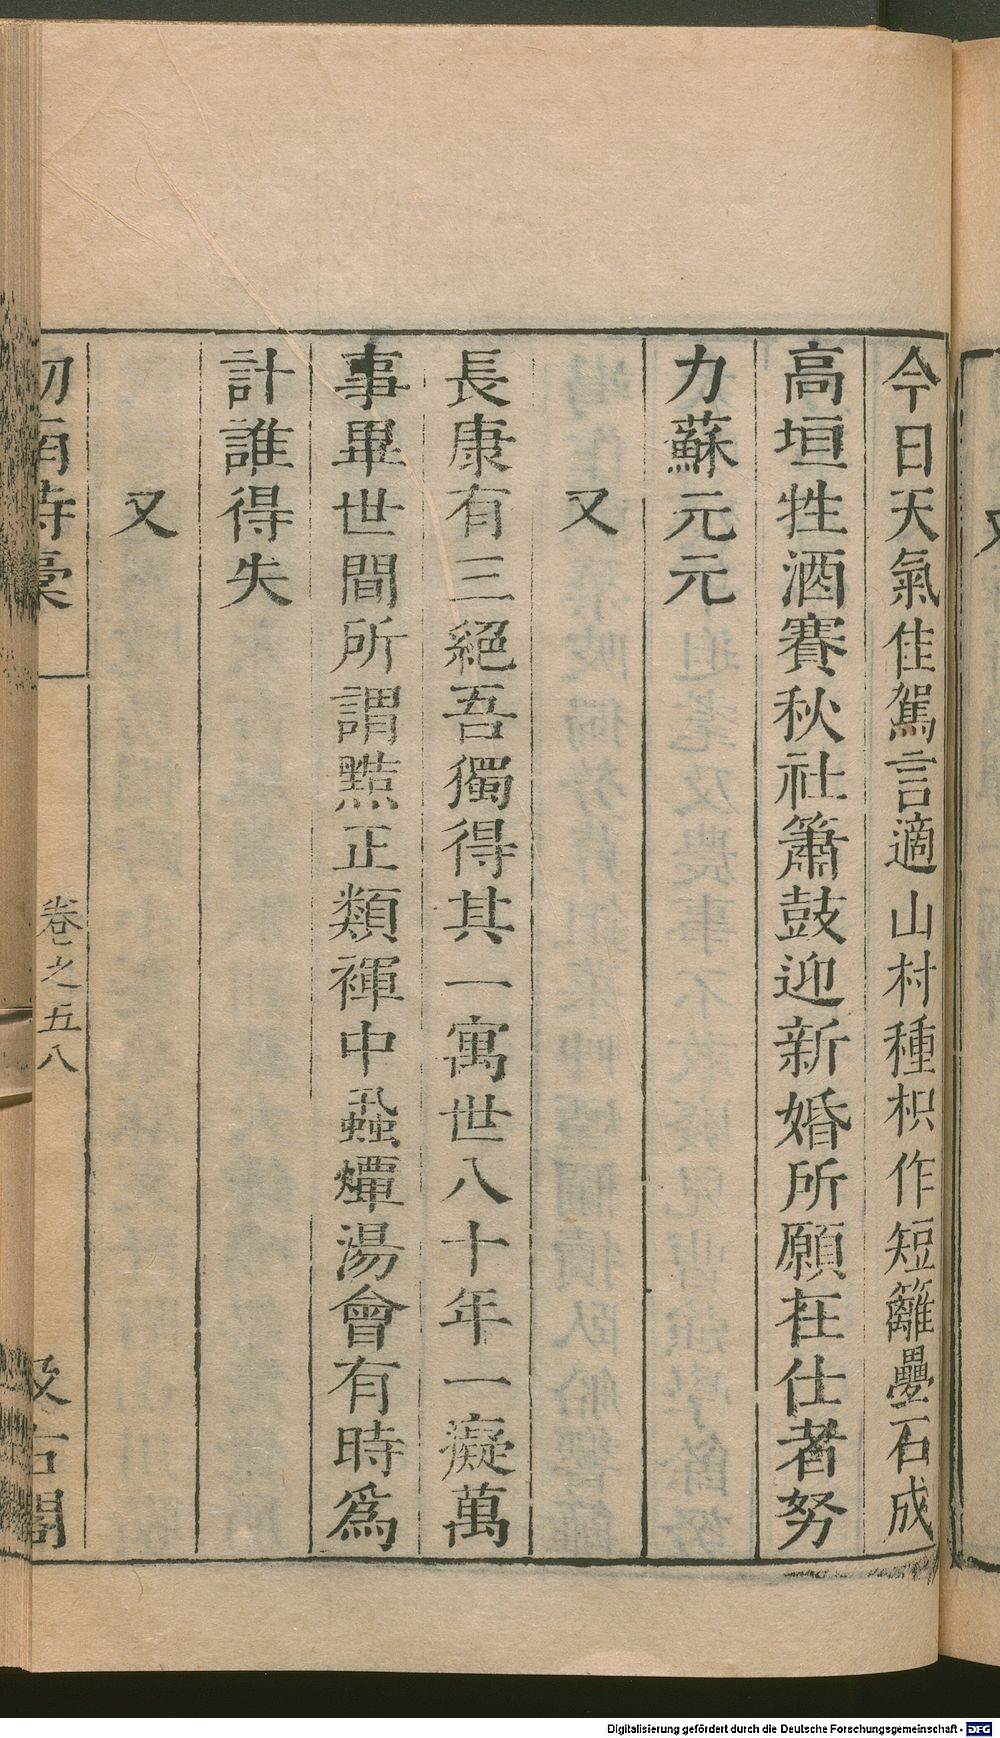 今日天氣佳駕言適山村種枳作短籬壘石成
高垣牲酒賽秋社簫鼓迎新婚所願在仕者努
力蘇元元
又
長康有三絕吾獨得其一寓世八十年一癡萬
事畢世間所謂黠正類褌中蝨燀湯會有時爲
計誰得失
又
劒南詩稾
卷之五八
汲古閣
Digitalisierung gefördert durch die Deutsche Forschungsgemeinschaft - DFG